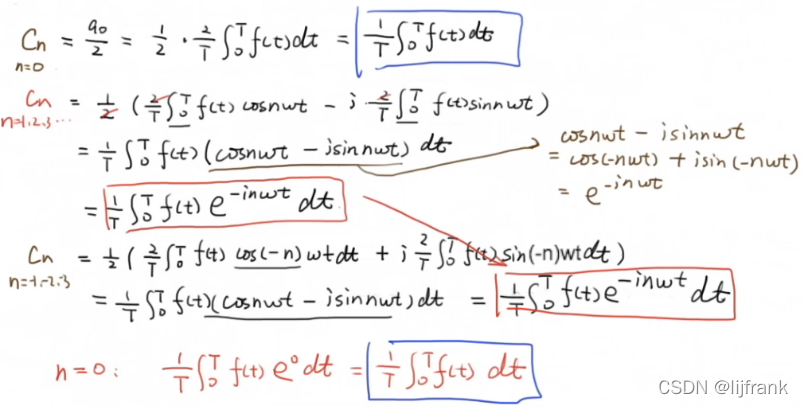 Cn = a₀/2 = 1/2 · 2/T ∫₀ᵀ f(t)dt = 1/T ∫₀ᵀ f(t)dt
n=0
Cn = 1/2 (2/T ∫₀ᵀ f(t) cosnwt - i · 2/T ∫₀ᵀ f(t)sinnwt)
n=1,2,3...
= 1/T ∫₀ᵀ f(t)(cosnwt - isinnwt) dt
cosnwt - isinnwt
= cos(-nwt) + isin(-nwt)
= e^-inwt
= 1/T ∫₀ᵀ f(t) e^-inwt dt
Cn = 1/2 (2/T ∫₀ᵀ f(t) cos(-n)wtdt + i 2/T ∫₀ᵀ f(t)sin(-n)wtdt)
n=-1,-2,-3
= 1/T ∫₀ᵀ f(t)(cosnwt - isinnwt)dt = 1/T ∫₀ᵀ f(t)e^-inwt dt
n=0: 1/T ∫₀ᵀ f(t) e⁰dt = 1/T ∫₀ᵀ f(t) dt
CSDN @lijfrank